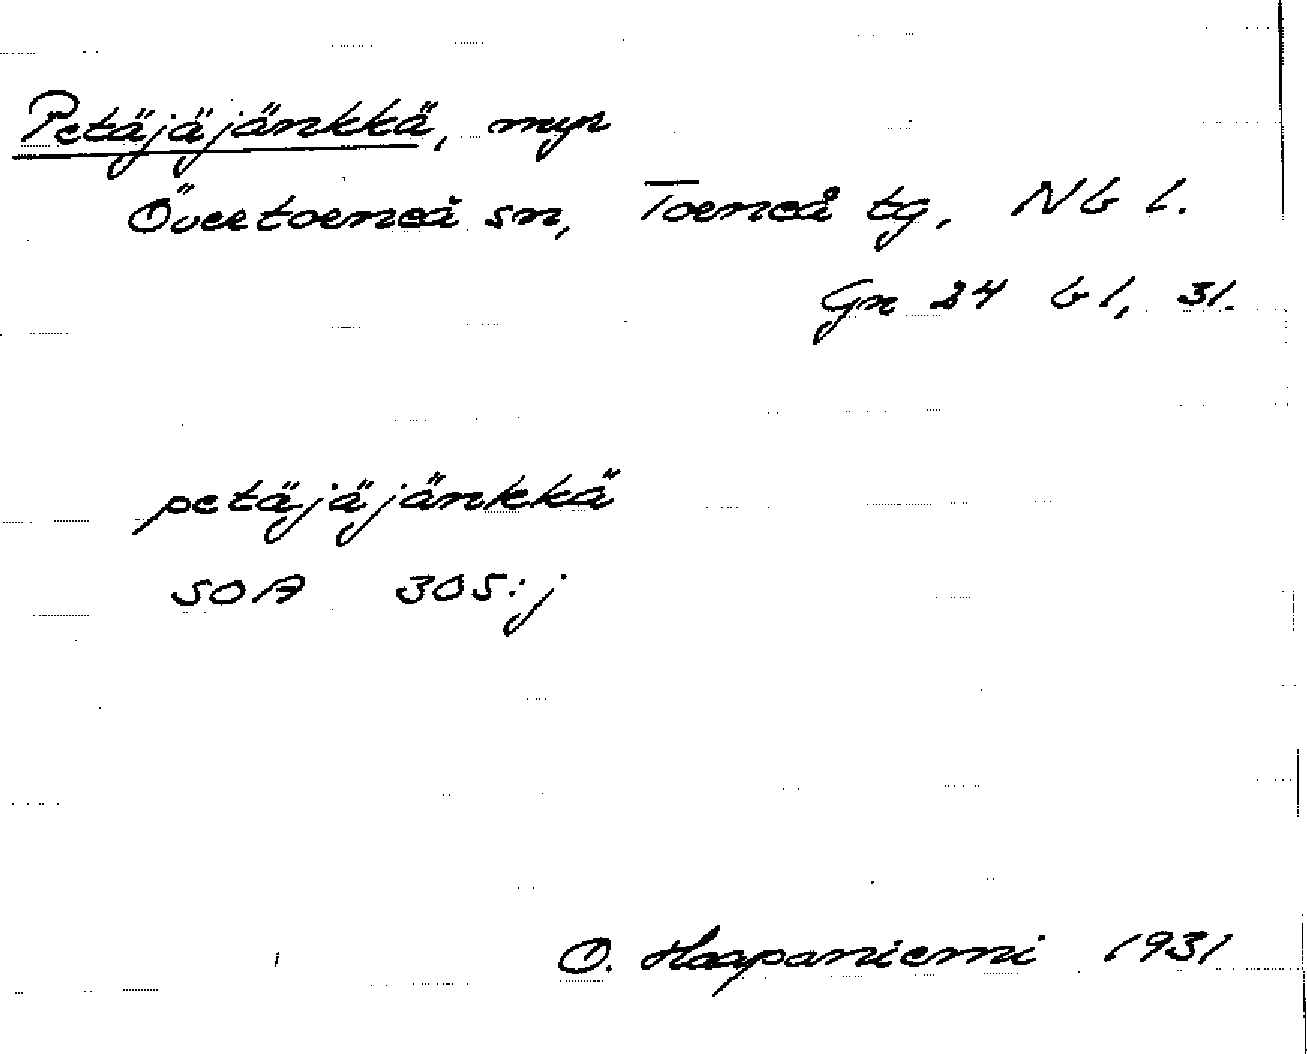 Petäjäjänkkä, myr
Övertorneå sn, Torneå tg, Nb l.
Gn 24 b 1, 31.
petäjäjänkkä
SOA 305:j
O. Haapaniemi 1931